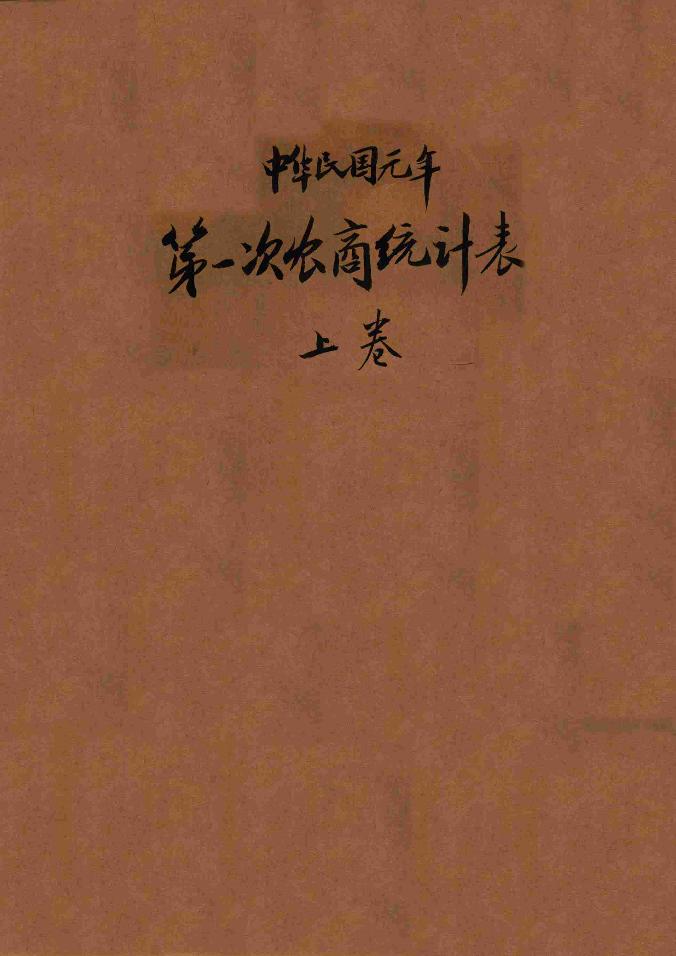 中华民国元年
第一次农商统计表
上卷